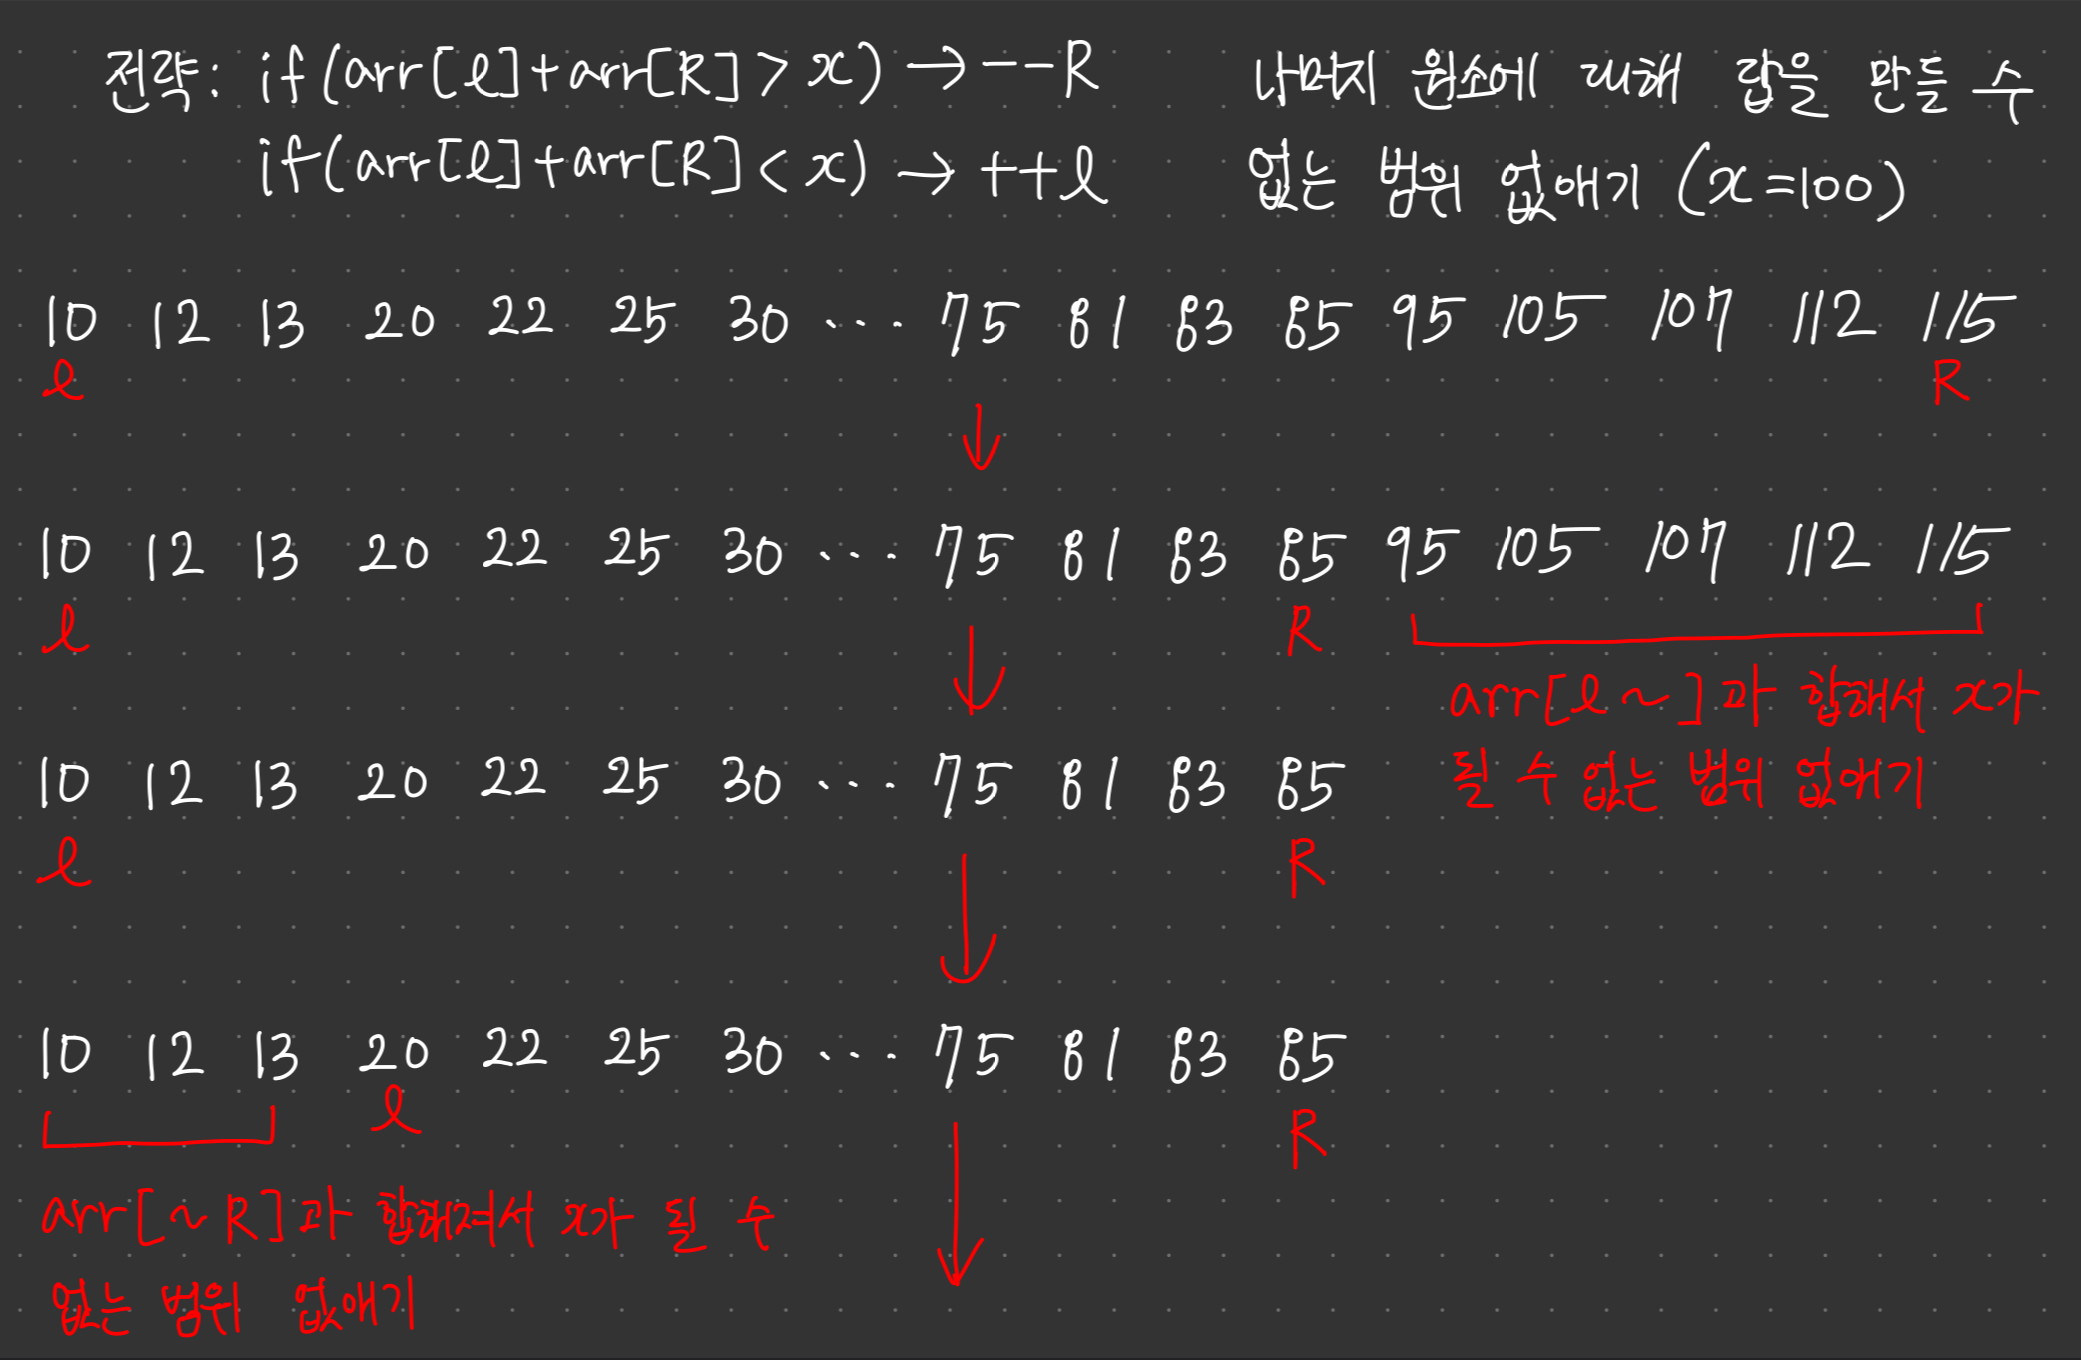 전략: if(arr[l]+arr[R]>x)→--R
if(arr[l]+arr[R]<x)→++l
나머지 원소에 대해 답을 만들 수
없는 범위 없애기 (x=100)
10 12 13 20 22 25 30 ... 75 81 83 85 95 105 107 112 115
l R
10 12 13 20 22 25 30 ... 75 81 83 85 95 105 107 112 115
l R
arr[l~]과 합해서 x가
될 수 없는 범위 없애기
10 12 13 20 22 25 30 ... 75 81 83 85
l R
10 12 13 20 22 25 30 ... 75 81 83 85
l R
arr[~R]과 합해져서 x가 될 수
없는 범위 없애기